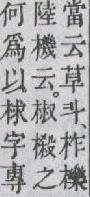 當云草斗、柞櫟
陸機云。椒樧之
何爲以梂字專